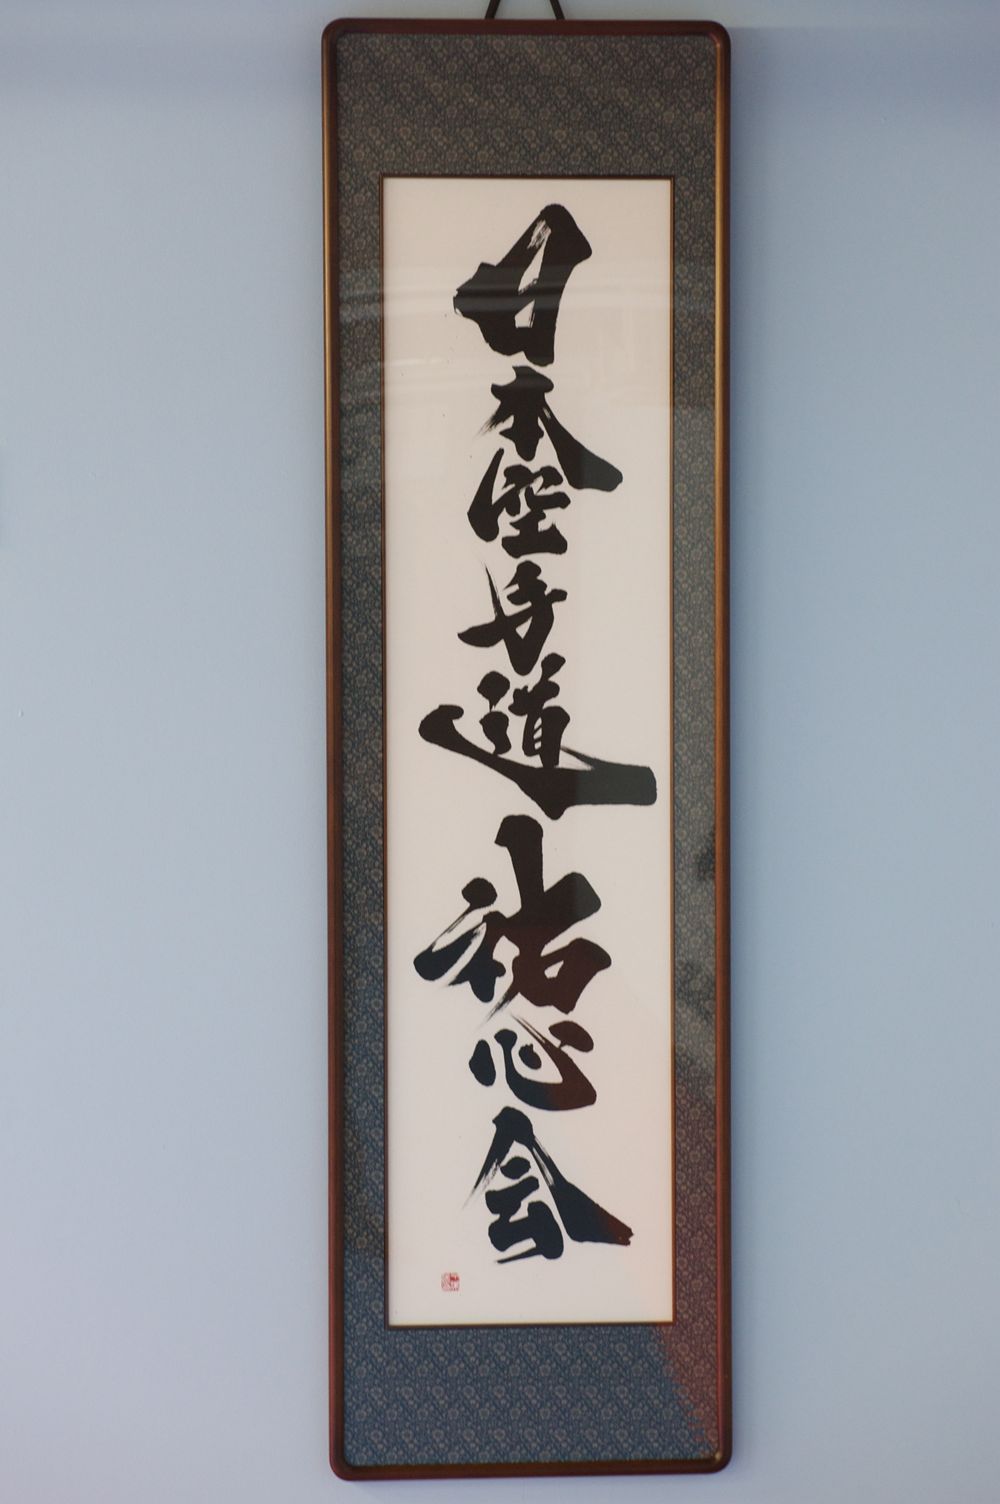 日本空手道祐心会